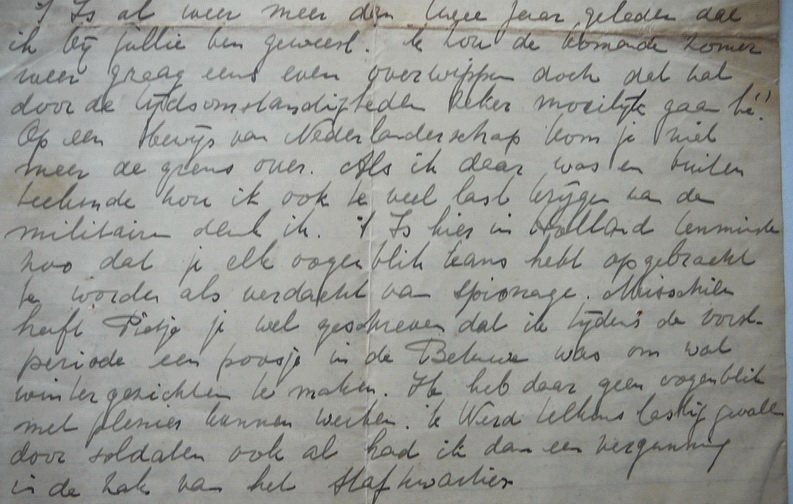 't Is al weer meer dan twee jaar geleden dat
ik bij jullie ben geweest. Ik zou de komende zomer
weer graag eens even overwippen doch dat zal
door de tijdsomstandigheden zeker moeilijk gaan hè!
Op een bewijs van Nederlanderschap kom je niet
meer de grens over. Als ik daar was en buiten
teekende zou ik ook te veel last krijgen van de
militairen denk ik. 't Is hier in Holland tenminste
zoo dat je elk oogenblik kans hebt opgebracht
te worden als verdacht van spionage. Misschien
heeft Pietje je wel geschreven dat ik tijdens de vorst-
periode een poosje in de Betuwe was om wat
wintergezichten te maken. Ik heb daar geen oogenblik
met plezier kunnen werken. Ik werd telkens lastig gevallen
door soldaten ook al had ik dan een vergunning
in de zak van het Stafkwartier